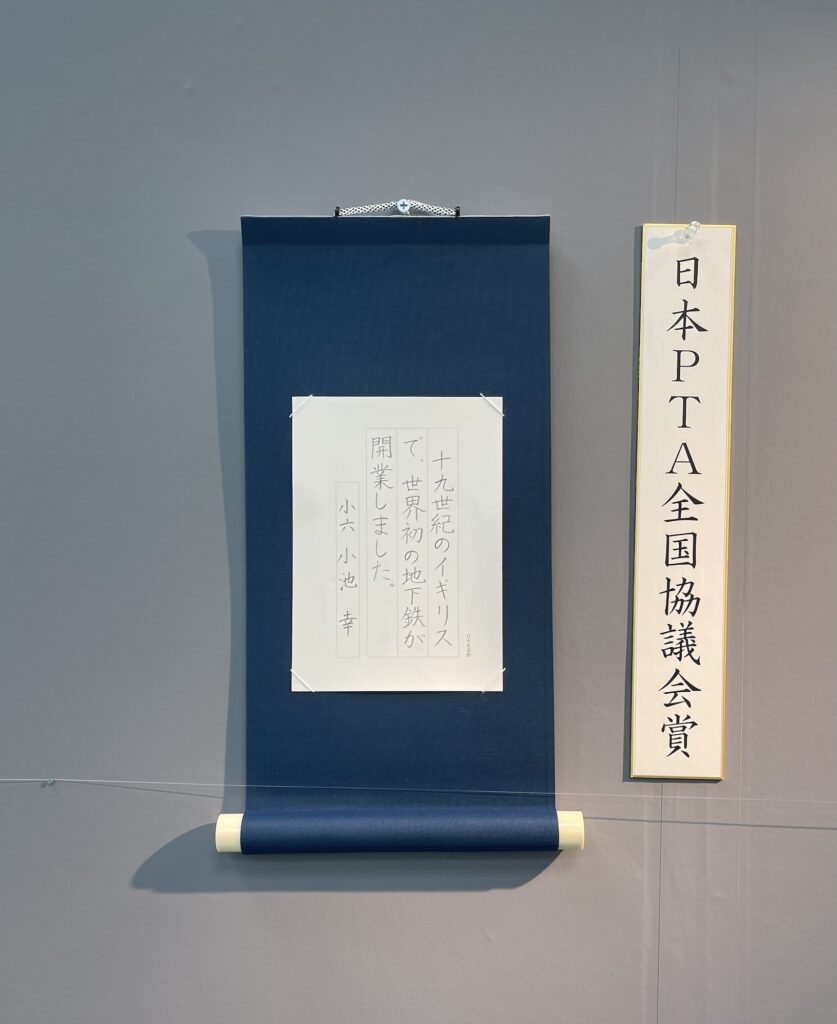 日本PTA全国協議会賞
十九世紀のイギリス
で、世界初の地下鉄が
開業しました。
小六 小池 幸
日本武道館